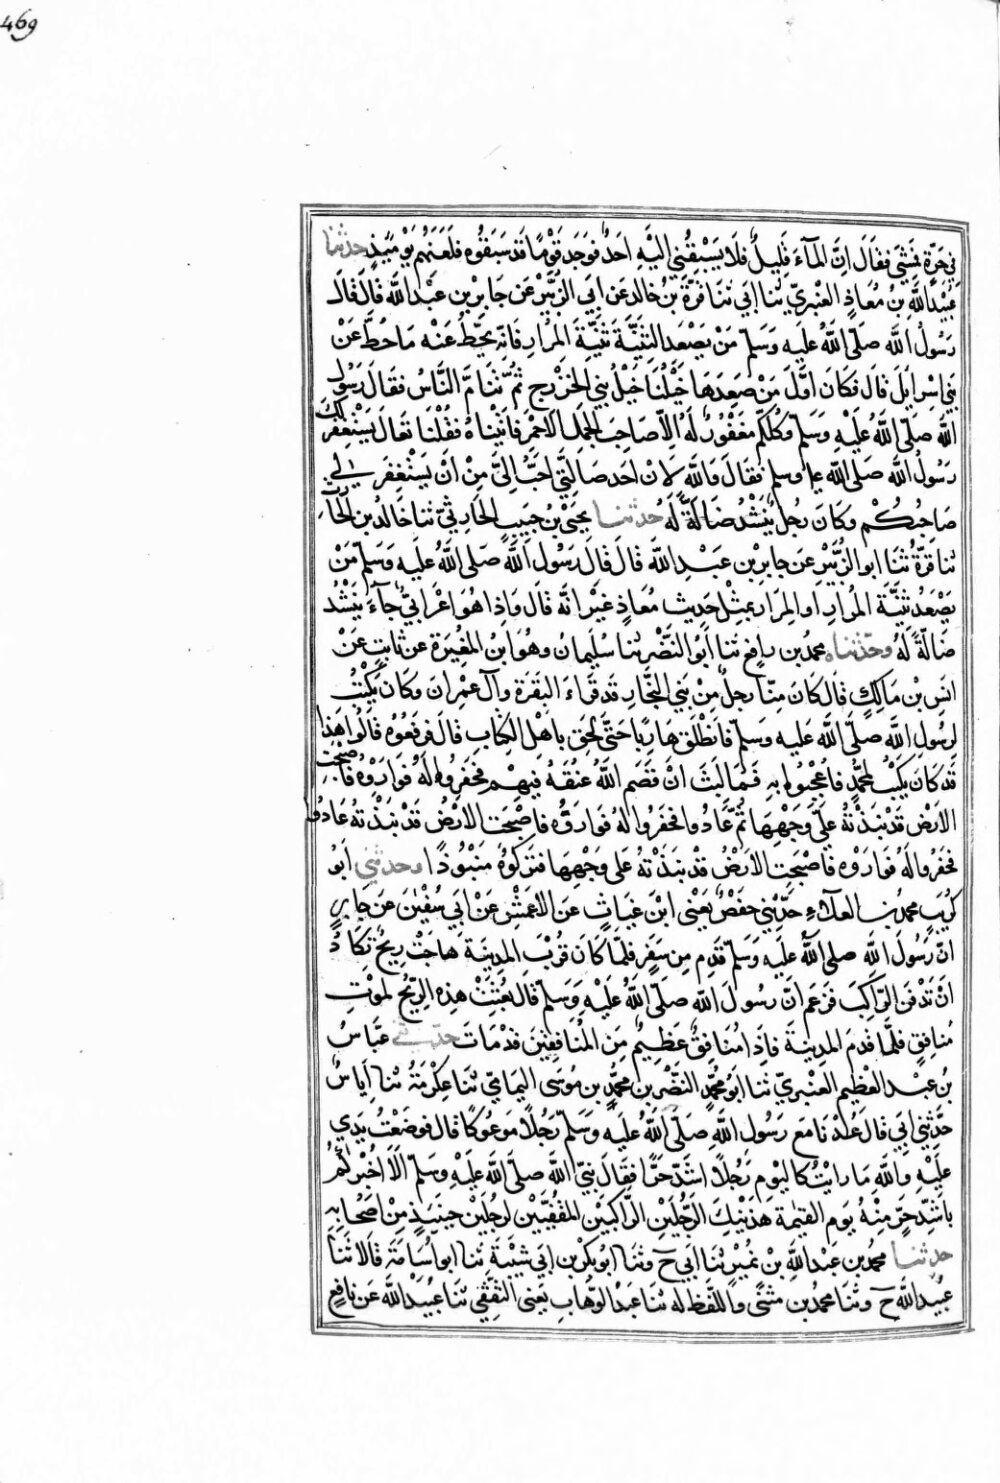 469
في حَرَّةٍ فمَشَى فقَالَ اِنَّ المآءَ قَلِيلٌ فَلَا يَسْبِقُنِي اِلَيْهِ اَحَدٌ فوَجَدَ قَوْمًا قَد سَبَقُوه فلَعَنَهُم يَوْمَئِذٍ حدثنا
عُبَيدُ اللّٰهِ بنُ مُعَاذٍ العَنْبَرِيّ ثنا اَبي ثنا قُرّةُ بنُ خالد عَن اَبي الزُّبَيْرِ عَن جَابِرِ بن عَبْدِ اللّٰه قَالَ قَالَ
رَسُولُ اللَّه صَلَّى اللَّهُ عَلَيهِ وَسَلّم مَنْ يَصْعَد الثَنِيَّةَ ثَنِيَّةَ المُرَارِ فَانّه يُحَطُّ عَنْه مَا حُطَّ عَنْ
بَنِي اِسْرآئلَ قَالَ فكَانَ اَوَّلَ مَنْ صَعِدَهَا خَيْلُنَا خَيْلُ بَنِي الخَزْرَجِ ثُمَّ تَتَامَّ النَّاسُ فقَالَ رَسُولُ
اللّٰهِ صَلّى اللّٰهُ عَلَيْهِ وَسَلم وَكُلّكُم مَغْفُورٌ لَهُ اِلَّا صَاحِبَ الجَمَلِ الاَحْمَرِ فَاتَيْنَاهُ فقُلْنَا تَعَالَ يَسْتَغْفِرْ لَكَ
رَسُولُ اللّٰه صَلى اللّٰه عليه وسلم فقَالَ وَاللّٰهِ لَاَنْ اَجِدَ ضَالَّتِي اَحَبُّ اِلَيَّ مِنْ اَنْ يَسْتَغْفِرَ لِي
صَاحِبُكُمْ وكَانَ رَجُلٌ يَنْشُدُ ضَالَّةً لَهُ حدثنا يَحْيَى بْنُ حَبِيبٍ الحَارِثيّ ثنا خَالدُ بن الحَارِثِ
ثنا قُرّةُ ثنا ابو الزُّبَيْر عَن جابِرِ بن عَبْدِ اللَّه قَالَ قَالَ رَسُولُ اللَّه صَلى اللَّهُ عَلَيه وَسَلم مَنْ
يَصْعَدُ ثَنِيَّةَ المُرَارِ اَو المِرَارِ بمِثلِ حَدِيثِ مُعَاذٍ غَيْرَ انّه قَالَ وَاِذَا هُوَ اَعْرَابيّ جَآءَ يَنْشُدُ
ضَالّةً لهُ وحدّثناه محمدُ بن رافِعٍ ثنا اَبُو النَّضْرِ ثنا سُلَيمان وهُوَ ابنُ المُغِيرَة عن ثابِتٍ عَنْ
اَنَسِ بْن مَالِكٍ قَالَ كَانَ مِنَّا رَجلٌ مِنْ بَنِي النَّجَّارِ قد قَرَاءَ البَقَرةَ وآلَ عِمْرَانَ وكَانَ يَكْتُبُ
لِرَسُولِ اللَّه صَلَّى اللَّه عَلَيه وَسَلّم فَانْطَلَقَ هَارِبًا حَتَّى لَحِقَ باَهْلِ الكِتَابِ قالَ فرَفَعُوهُ قَالُوا هَذَا
قَد كَانَ يَكْتُبُ لِمحمّدٍ فَاُعْجِبُوا بِه فَمَا لَبِثَ اَنْ قَصَمَ اللَّهُ عُنُقَهُ فِيهِمْ فحَفَرُوا لَهُ فَوَارَوْهُ فَاَصْبَحَت
الاَرْضُ قد نَبَذَتْهُ عَلَى وَجْهِهَا ثُمّ عَادُوا فحَفَرُوا لهُ فَوَارَوْهُ فاَصْبَحَت الاَرْضُ قَدْ نَبَذَتهُ عَادُوا
فحَفَرُوا لَهُ فوَارَوْه فاَصْبَحَتِ الاَرْضُ قدْ نَبَذَتْهُ عَلى وَجْهِهَا فتَرَكُوهُ مَنْبُوذًا وحدثني اَبُو
كُرَيبٍ محمدُ بن العلآءِ حَدّثني حفصٌ يَعْنِي ابْنَ غِيَاثٍ عَنِ الاَعْمَشِ عَنْ اَبِي سُفْيٰنَ عَن جَابِرٍ
اَنّ رَسُولَ اللَّهِ صلى اللَّهُ عليهِ وَسَلّم قَدِمَ مِن سَفَرٍ فلَمّا كَانَ قُرْبَ المدِينَةِ هَاجَتْ رِيحٌ تَكَادُ
اَنْ تَدْفِنَ الرَّاكِبَ فزَعَم اَنّ رسُولَ اللّه صَلّى اللّهُ عَلَيْهِ وَسَلم قَالَ بُعِثَتْ هذِهِ الرِّيحُ لِمَوْتِ
مُنافِقٍ فلَمَّا قَدِمَ المدِينَةَ فَاِذَا مُنَافِقٌ عَظِيمٌ مِنَ المُنَافِقِينَ قد مَاتَ حدّثني عَبَّاسُ
بن عَبدِ العَظِيمِ العَنْبَرِيّ ثنا اَبُو مُحمّدٍ النَّضْرُ بن محمّدِ بن مُوسَى اليَمَامِيّ ثنا عِكْرمَةُ ثنا اِيَاسُ
حَدّثني اَبِي قَالَ عُدْنَا مَعَ رَسُولِ اللّهِ صَلى اللَّهُ عليه وسَلّم رَجُلًا مَوْعُوكًا قَالَ فوَضَعْتُ يَدِي
عَلَيْهِ فقلت واللّٰهِ مَا رَايْتُ كَاليَوم رَجُلًا اَشَدَّ حَرًّا فقَالَ نبيّ اللّٰه صَلى اللّٰه عَلَيْهِ وسَلم اَلَا اُخْبِرُكُمْ
بِاَشَدَّ حَرٍّ مِنْهُ يَومَ القِيٰمة هَذَيْنِكَ الرَّجُلَيْنِ الرَّاكِبَيْنِ المُقَفِّيَيْنِ لِرَجُلَيْنِ حِينَئِذٍ مِنْ اَصْحَابِهِ
حدثنا محمدُ بن عَبْدِ اللَّهِ بْن نُمَيرٍ ثنا اَبي ح وثنا ابُو بَكْرِ بن اَبي شيبَةَ ثنا ابو اُسَامَة قَالَا ثنا
عُبَيْدُ اللّهِ ح وثنا محمدُ بن مثنَّى واللفظ له ثنا عبد الوَهّابِ يَعني الثقَفِيّ ثنا عُبَيْدُ اللَّه عَن نَافِعٍ